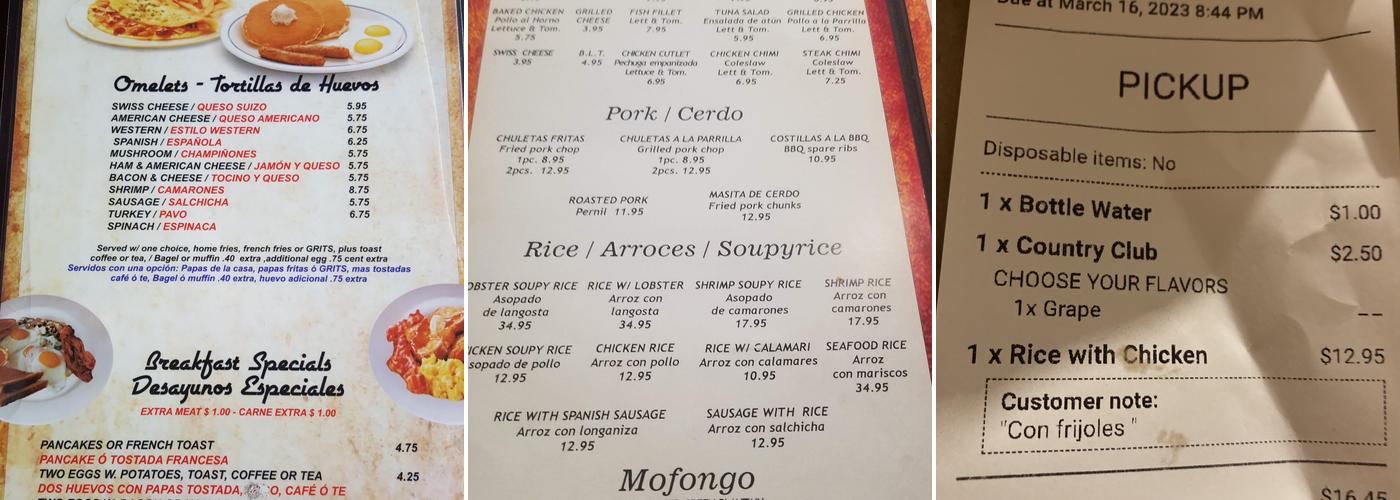 Omelets - Tortillas de Huevos
SWISS CHEESE / QUESO SUIZO 5.95
AMERICAN CHEESE / QUESO AMERICANO 5.75
WESTERN / ESTILO WESTERN 6.75
SPANISH / ESPAÑOLA 6.25
MUSHROOM / CHAMPIÑONES 5.75
HAM & AMERICAN CHEESE / JAMÓN Y QUESO 5.75
BACON & CHEESE / TOCINO Y QUESO 5.75
SHRIMP / CAMARONES 8.75
SAUSAGE / SALCHICHA 5.75
TURKEY / PAVO 6.75
SPINACH / ESPINACA
Served w/ one choice, home fries, french fries or GRITS, plus toast
coffee or tea, / Bagel or muffin .40 extra ,additional egg .75 cent extra
Servidos con una opción: Papas de la casa, papas fritas ó GRITS, mas tostadas
café ó te, Bagel ó muffin .40 extra, huevo adicional .75 extra
Breakfast Specials
Desayunos Especiales
EXTRA MEAT $ 1.00 - CARNE EXTRA $ 1.00
PANCAKES OR FRENCH TOAST 4.75
PANCAKE Ó TOSTADA FRANCESA
TWO EGGS W. POTATOES, TOAST, COFFEE OR TEA 4.25
DOS HUEVOS CON PAPAS TOSTADA, CAFÉ Ó TE
BAKED CHICKEN GRILLED FISH FILLET TUNA SALAD GRILLED CHICKEN
Pollo al Horno CHEESE Lett & Tom. Ensalada de atún Pollo a la Parrilla
Lettuce & Tom. 3.95 7.95 Lett & Tom. Lett & Tom.
5.75 5.95 6.95
SWISS CHEESE B.L.T. CHICKEN CUTLET CHICKEN CHIMI STEAK CHIMI
3.95 4.95 Pechuga empanizada Coleslaw Coleslaw
Lettuce & Tom. Lett & Tom. Lett & Tom.
6.95 6.95 7.25
Pork / Cerdo
CHULETAS FRITAS CHULETAS A LA PARRILLA COSTILLAS A LA BBQ
Fried pork chop Grilled pork chop BBQ spare ribs
1pc. 8.95 1pc. 8.95 10.95
2pcs. 12.95 2pcs. 12.95
ROASTED PORK MASITA DE CERDO
Pernil 11.95 Fried pork chunks
12.95
Rice / Arroces / Soupyrice
OBSTER SOUPY RICE RICE W/ LOBSTER SHRIMP SOUPY RICE SHRIMP RICE
Asopado Arroz con Asopado Arroz con
de langosta langosta de camarones camarones
34.95 34.95 17.95 17.95
ICKEN SOUPY RICE CHICKEN RICE RICE W/ CALAMARI SEAFOOD RICE
sopado de pollo Arroz con pollo Arroz con calamares Arroz
12.95 12.95 10.95 con mariscos
34.95
RICE WITH SPANISH SAUSAGE SAUSAGE WITH RICE
Arroz con longaniza Arroz con salchicha
12.95 12.95
Mofongo
Due at March 16, 2023 8:44 PM
PICKUP
Disposable items: No
1 x Bottle Water $1.00
1 x Country Club $2.50
CHOOSE YOUR FLAVORS
1x Grape --
1 x Rice with Chicken $12.95
Customer note:
"Con frijoles "
$16.45